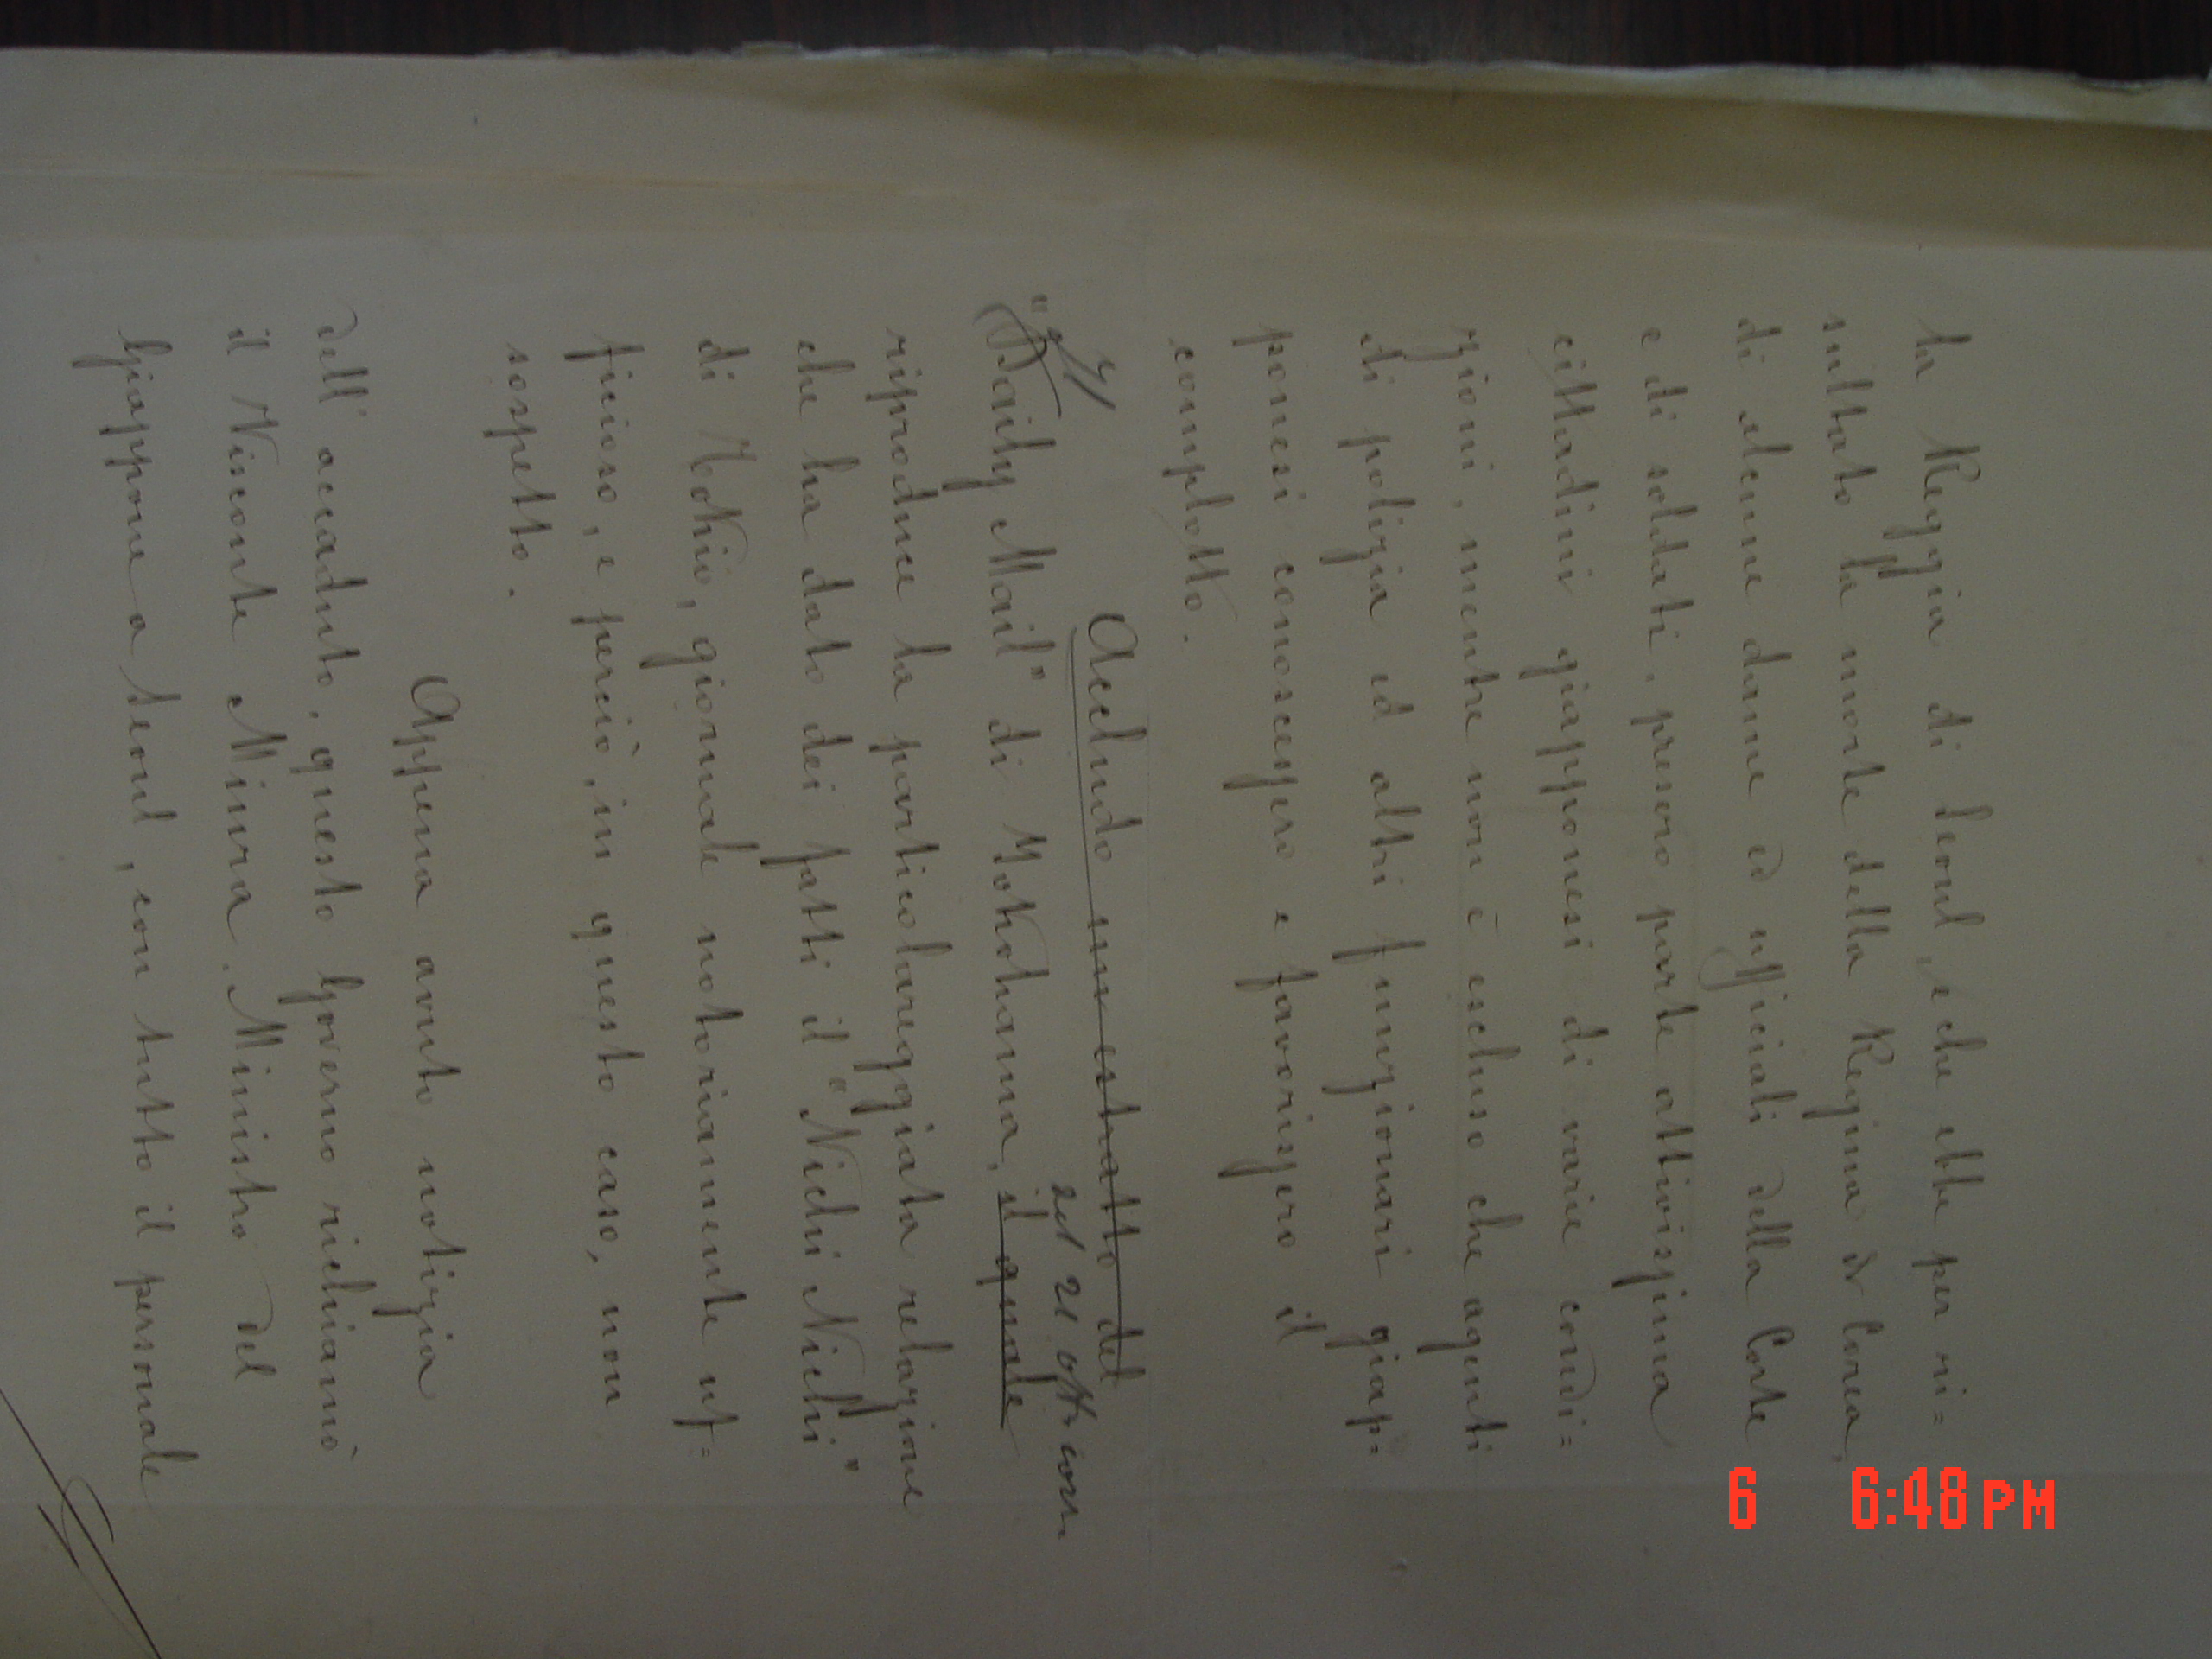 la Reggia di Seoul, e che ebbe per ri=
sultato la morte della Regina di Corea,
di alcune dame ed ufficiali della Corte
e di soldati, presero parte attivissima
cittadini giapponesi di varie condi=
zioni, mentre non è escluso che agenti
di polizia ed altri funzionari giap=
ponesi conoscessero e favorissero il
complotto.
Accludo un estratto del
Il
"Daily Mail" di Yokohama, il quale
del 21 ott. corr.
riproduce la particolareggiata relazione
che ha dato dei fatti il "Nichi Nichi"
di Tokio, giornale notoriamente uf=
ficioso, e perciò, in questo caso, non
sospetto.
Appena avuto notizia
dell'accaduto, questo Governo richiamò
il Visconte Miura, Ministro del
Giappone a Seoul, con tutto il personale
6 6:48 PM